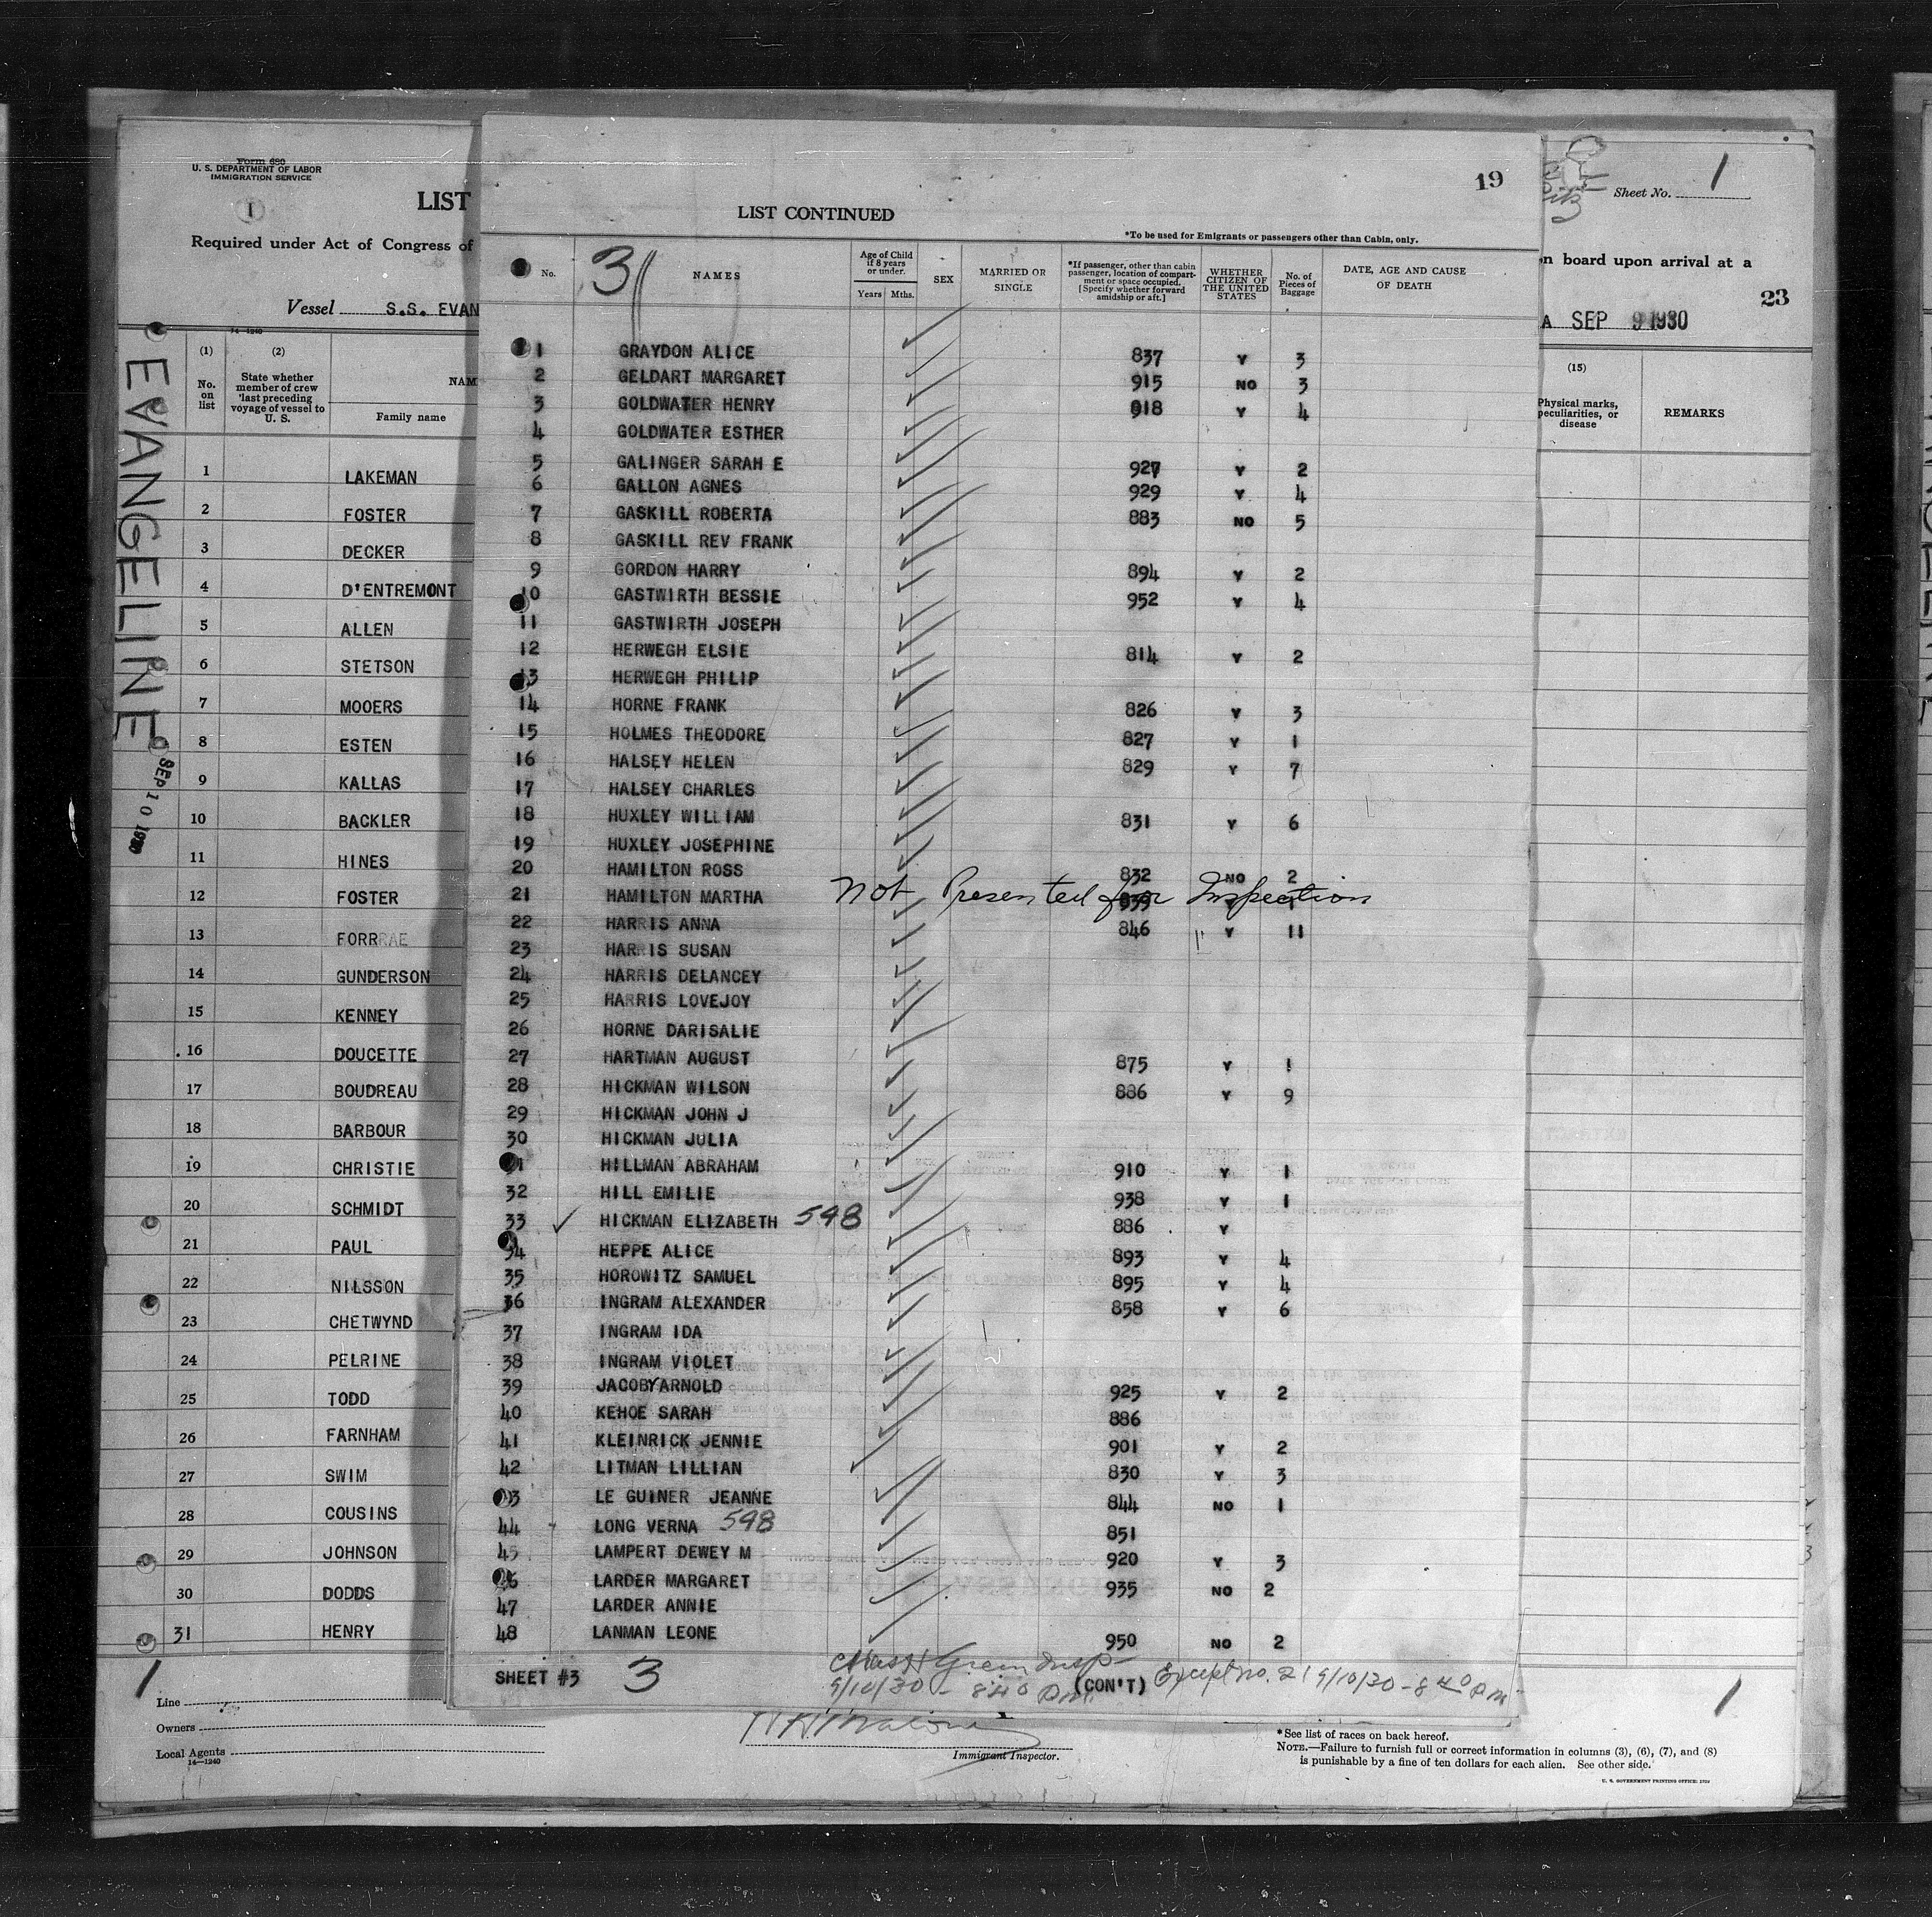 Form 680
U. S. DEPARTMENT OF LABOR
IMMIGRATION SERVICE
1
LIST
Required under Act of Congress of
Vessel S.S. EVAN
14-1240
EVANGELINE
SEP 10 1930
(1) (2)
No. on list
State whether member of crew last preceding voyage of vessel to U. S.
NAM
Family name
1 LAKEMAN
2 FOSTER
3 DECKER
4 D'ENTREMONT
5 ALLEN
6 STETSON
7 MOOERS
8 ESTEN
9 KALLAS
10 BACKLER
11 HINES
12 FOSTER
13 FORRRAE
14 GUNDERSON
15 KENNEY
16 DOUCETTE
17 BOUDREAU
18 BARBOUR
19 CHRISTIE
20 SCHMIDT
21 PAUL
22 NILSSON
23 CHETWYND
24 PELRINE
25 TODD
26 FARNHAM
27 SWIM
28 COUSINS
29 JOHNSON
30 DODDS
31 HENRY
1
Line
Owners
Local Agents
14-1240
19
LIST CONTINUED
*To be used for Emigrants or passengers other than Cabin, only.
3
No.
NAMES
Age of Child if 8 years or under.
Years Mths.
SEX
MARRIED OR SINGLE
*If passenger, other than cabin passenger, location of compartment or space occupied. [Specify whether forward amidship or aft.]
WHETHER CITIZEN OF THE UNITED STATES
No. of Pieces of Baggage
DATE, AGE AND CAUSE OF DEATH
1 GRAYDON ALICE 837 Y 3
2 GELDART MARGARET 915 NO 3
3 GOLDWATER HENRY 918 Y 4
4 GOLDWATER ESTHER
5 GALINGER SARAH E 927 Y 2
6 GALLON AGNES 929 Y 4
7 GASKILL ROBERTA 883 NO 5
8 GASKILL REV FRANK
9 GORDON HARRY 894 Y 2
10 GASTWIRTH BESSIE 952 Y 4
11 GASTWIRTH JOSEPH
12 HERWEGH ELSIE 814 Y 2
13 HERWEGH PHILIP
14 HORNE FRANK 826 Y 3
15 HOLMES THEODORE 827 Y 1
16 HALSEY HELEN 829 Y 7
17 HALSEY CHARLES
18 HUXLEY WILLIAM 831 Y 6
19 HUXLEY JOSEPHINE
20 HAMILTON ROSS 832 NO 2
21 HAMILTON MARTHA not Presented for Inspection
22 HARRIS ANNA 846 Y 11
23 HARRIS SUSAN
24 HARRIS DELANCEY
25 HARRIS LOVEJOY
26 HORNE DARISALIE
27 HARTMAN AUGUST 875 Y 1
28 HICKMAN WILSON 886 Y 9
29 HICKMAN JOHN J
30 HICKMAN JULIA
31 HILLMAN ABRAHAM 910 Y 1
32 HILL EMILIE 938 Y 1
33 ✓ HICKMAN ELIZABETH 598 886 Y
34 HEPPE ALICE 893 Y 4
35 HOROWITZ SAMUEL 895 Y 4
36 INGRAM ALEXANDER 858 Y 6
37 INGRAM IDA
38 INGRAM VIOLET
39 JACOBY ARNOLD 925 Y 2
40 KEHOE SARAH 886
41 KLEINRICK JENNIE 901 Y 2
42 LITMAN LILLIAN 830 Y 3
43 LE GUINER JEANNE 844 NO 1
44 LONG VERNA 598 851
45 LAMPERT DEWEY M 920 Y 3
46 LARDER MARGARET 935 NO 2
47 LARDER ANNIE
48 LANMAN LEONE 950 NO 2
SHEET #3 3 (CON'T)
Insp
9/10/30 - 840 P.M.
Except no. 21 9/10/30 - 8 40 P.M.
Immigrant Inspector.
Sheet No. 1
n board upon arrival at a
23
A SEP 9 1930
(15)
Physical marks, peculiarities, or disease
REMARKS
1
*See list of races on back hereof.
NOTE.—Failure to furnish full or correct information in columns (3), (6), (7), and (8)
is punishable by a fine of ten dollars for each alien. See other side.
U. S. GOVERNMENT PRINTING OFFICE: